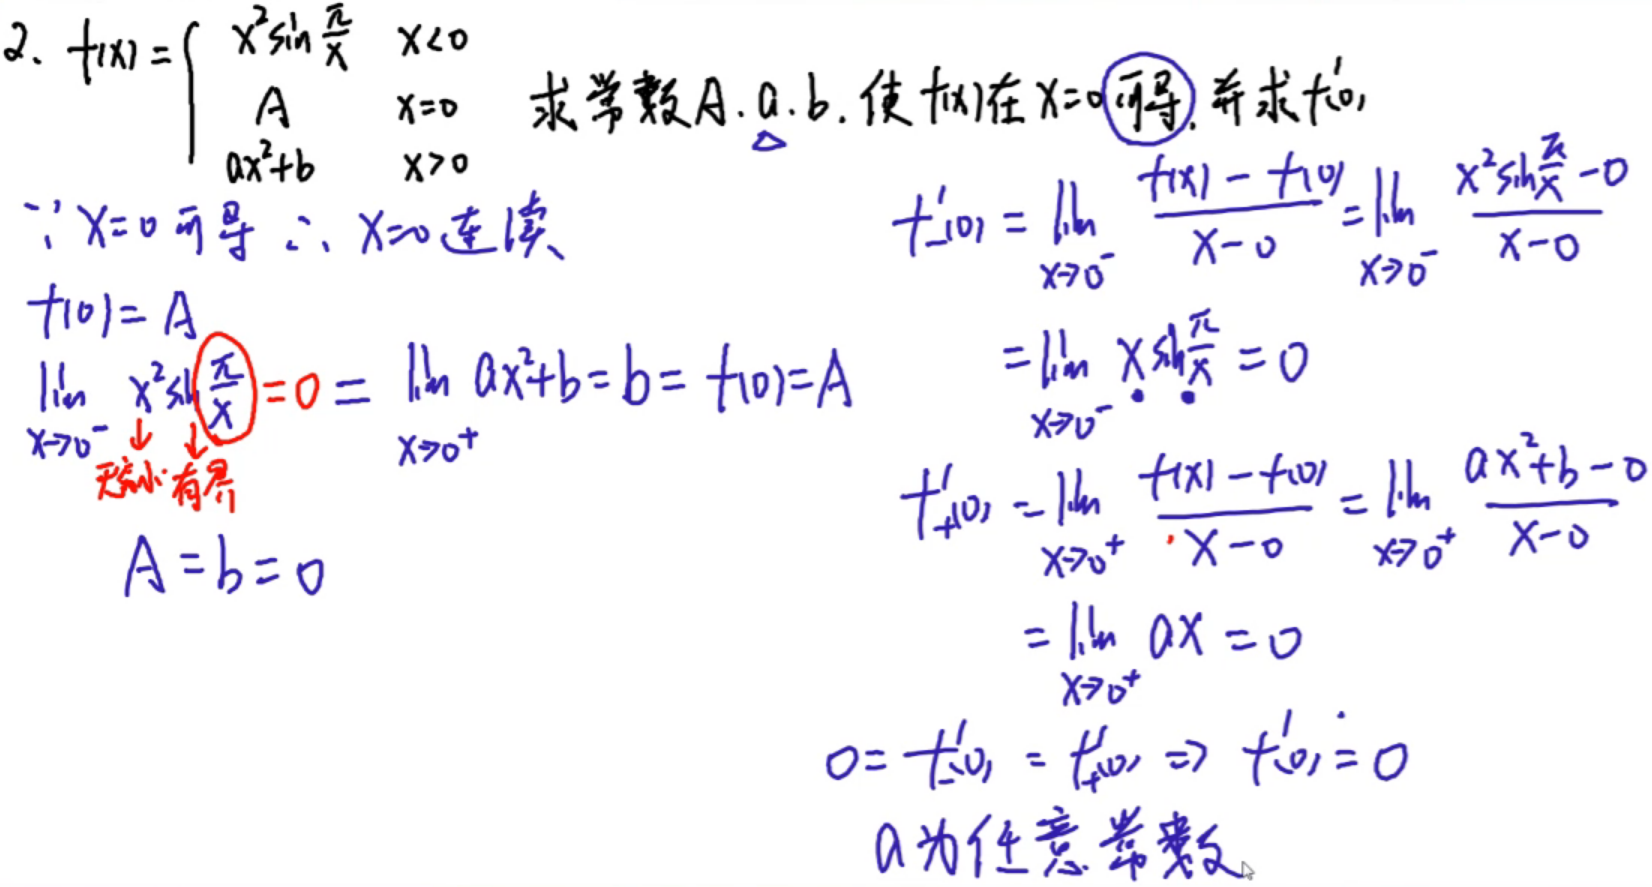 2. f(x) = { x² sin π/x  x<0
A  x=0
ax²+b  x>0
求常数A.a.b.使f(x)在x=0可导.并求f'(0)
∵ x=0可导 ∴ x=0连续
f(0) = A
lim x→0⁻ x² sin π/x = 0 = lim x→0⁺ ax²+b = b = f(0) = A
无穷小 有界
A = b = 0
f'₋(0) = lim x→0⁻ (f(x) - f(0))/(x-0) = lim x→0⁻ (x² sin π/x - 0)/(x-0)
= lim x→0⁻ x sin π/x = 0
f'₊(0) = lim x→0⁺ (f(x) - f(0))/(x-0) = lim x→0⁺ (ax²+b-0)/(x-0)
= lim x→0⁺ ax = 0
0 = f'₋(0) = f'₊(0) ⇒ f'(0) = 0
a为任意常数